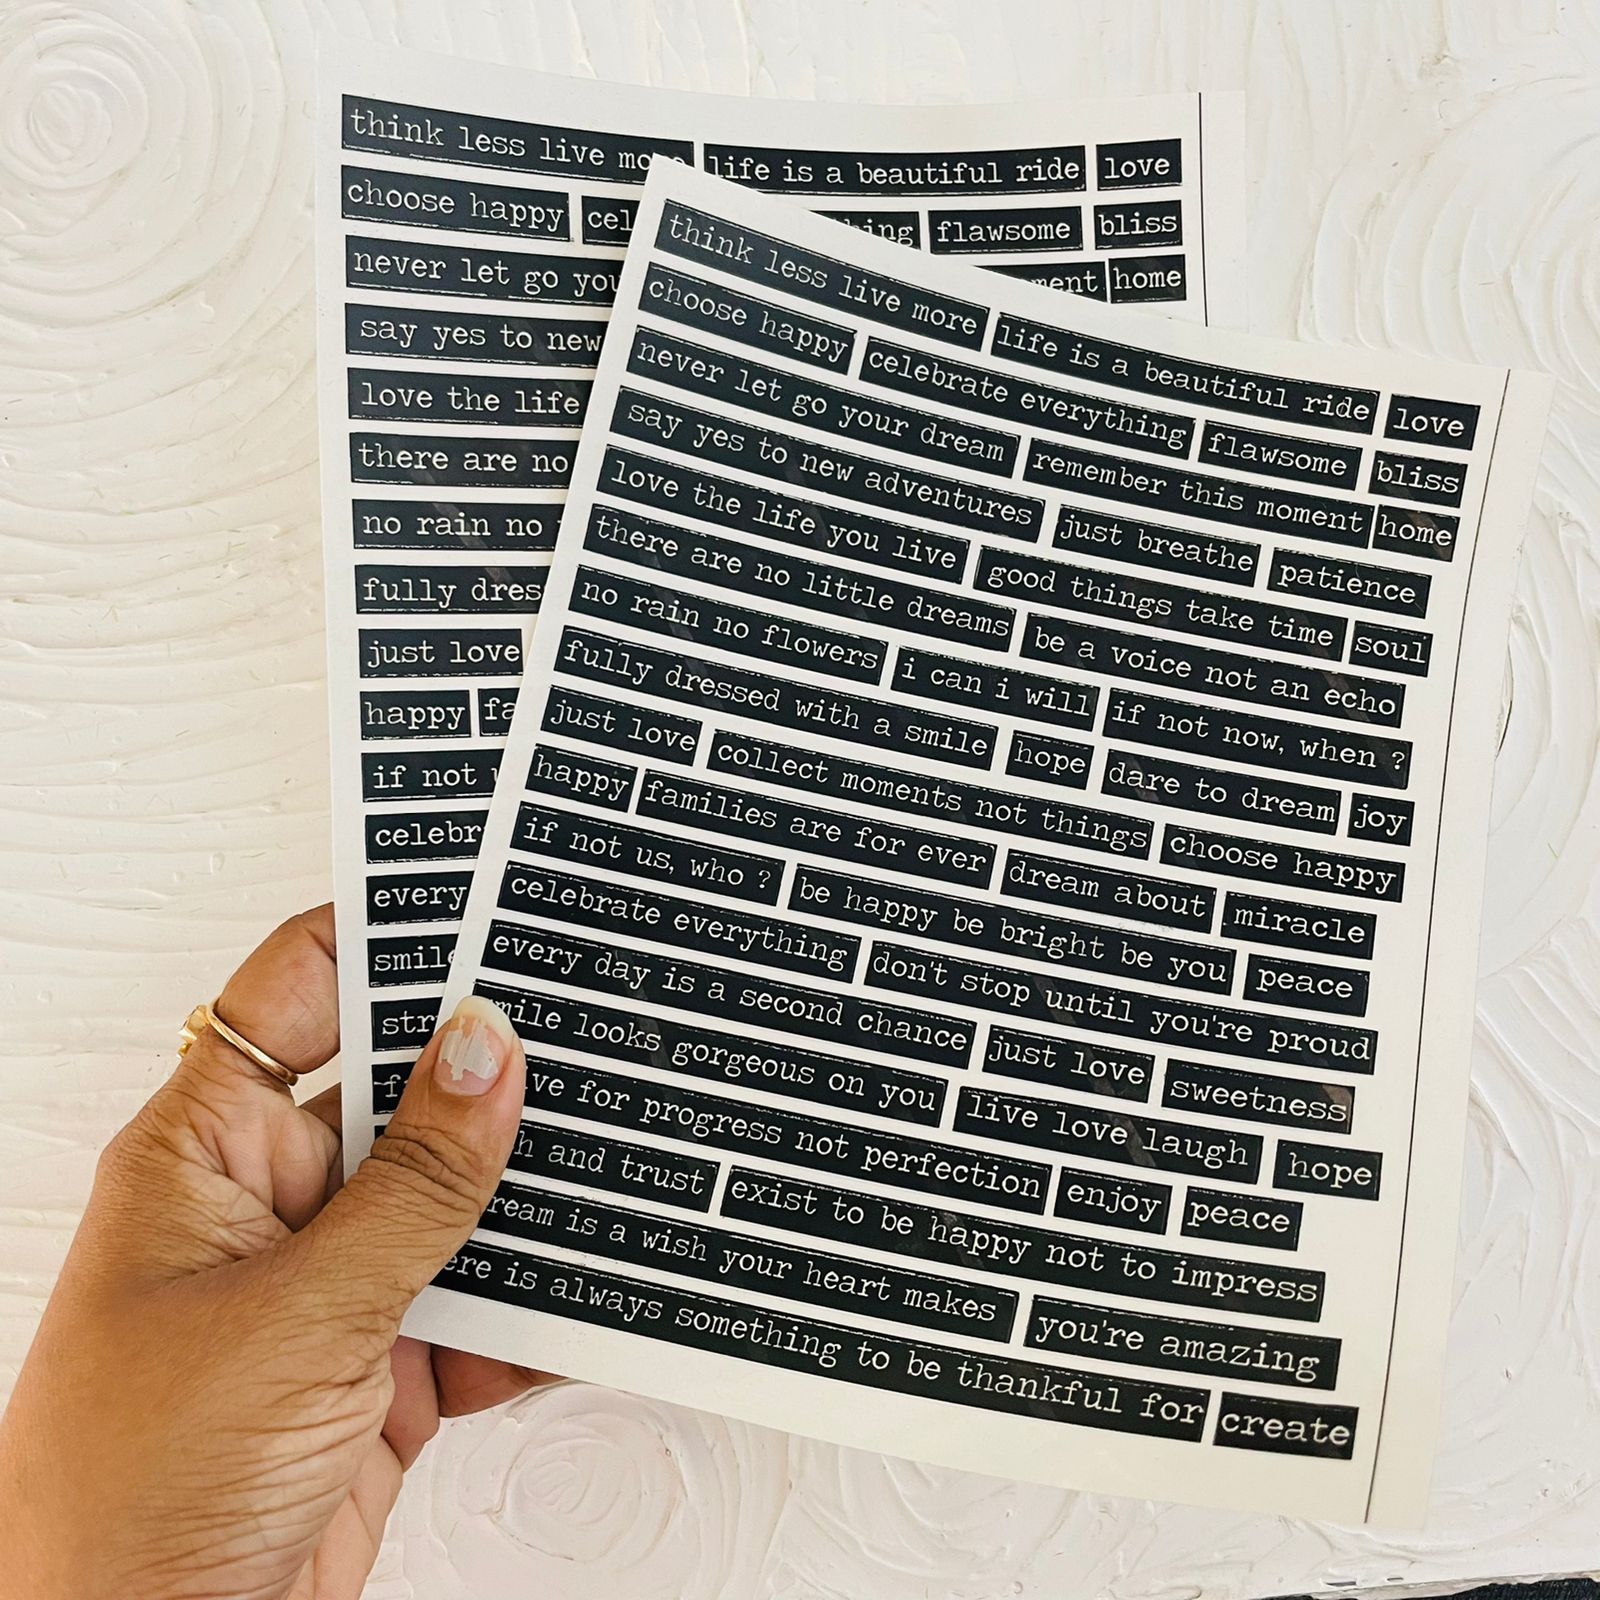 think less live more life is a beautiful ride love
choose happy cel hing flawsome bliss
never let go you ment home
say yes to new
love the life
there are no
no rain no
fully dres
just love
happy fa
if not
celebr
every
smile
str
f
think less live more life is a beautiful ride love
choose happy celebrate everything flawsome bliss
never let go your dream remember this moment home
say yes to new adventures just breathe patience
love the life you live good things take time soul
there are no little dreams be a voice not an echo
no rain no flowers i can i will if not now, when ?
fully dressed with a smile hope dare to dream joy
just love collect moments not things choose happy
happy families are for ever dream about miracle
if not us, who ? be happy be bright be you peace
celebrate everything don't stop until you're proud
every day is a second chance just love sweetness
mile looks gorgeous on you live love laugh hope
ve for progress not perfection enjoy peace
h and trust exist to be happy not to impress
ream is a wish your heart makes you're amazing
ere is always something to be thankful for create